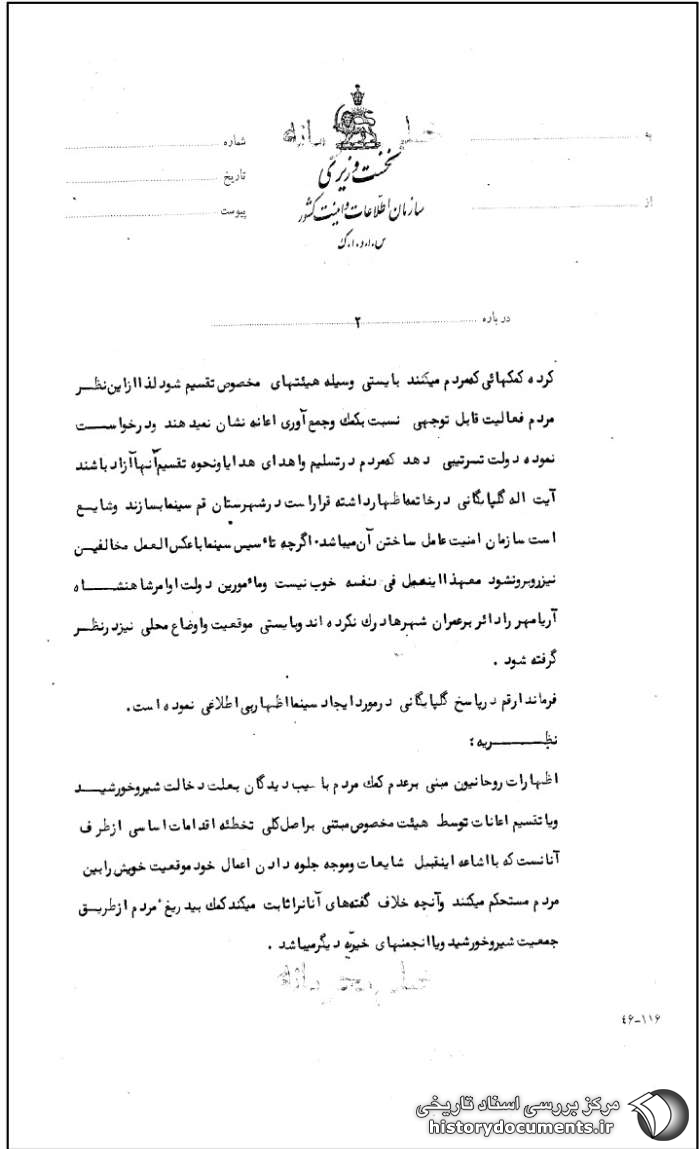 به
شماره
تاریخ
از
پیوست
خیلی محرمانه
نخست وزیری
سازمان اطلاعات و امنیت کشور
س.ا.و.ا.ک
درباره ۲
کرده کمکهائی که مردم میکنند بایستی وسیله هیئتهای مخصوص تقسیم شود لذا از این نظر
مردم فعالیت قابل توجهی نسبت بکمک وجمع آوری اعانه نشان نمیدهند ودرخواست
نموده دولت ترتیبی دهد که مردم در تسلیم واهدای هدایا ونحوه تقسیم آنها آزاد باشند
آیت اله گلپایگانی در خاتمه اظهار داشته قرار است در شهرستان قم سینما بسازند وشایع
است سازمان امنیت عامل ساختن آن میباشد. اگرچه تأسیس سینما با عکس العمل مخالفین
نیز روبرو نشود معهذا اینعمل فی نفسه خوب نیست ومأمورین دولت اوامر شاهنشاه
آریامهر را دائر بر عمران شهرها درك نکرده اند وبایستی موقعیت واوضاع محلی نیز در نظر
گرفته شود .
فرماندار قم در پاسخ گلپایگانی در مورد ایجاد سینما اظهار بی اطلاعی نموده است .
نظریه :
اظهارات روحانیون مبنی بر عدم کمك مردم بآسیب دیدگان بعلت دخالت شیروخورشید
ویا تقسیم اعانات توسط هیئت مخصوص مبتنی بر اصل کلی تخطئه اقدامات اساسی از طرف
آنانست که با اشاعه اینقبیل شایعات وموجه جلوه دادن اعمال خود موقعیت خویش را بین
مردم مستحکم میکنند وآنچه خلاف گفته های آنانرا ثابت میکند کمك بیدریغ مردم از طریق
جمعیت شیروخورشید ویا انجمنهای خیریه دیگر میباشد .
۴۶-۱۱۶
مرکز بررسی اسناد تاریخی
historydocuments.ir